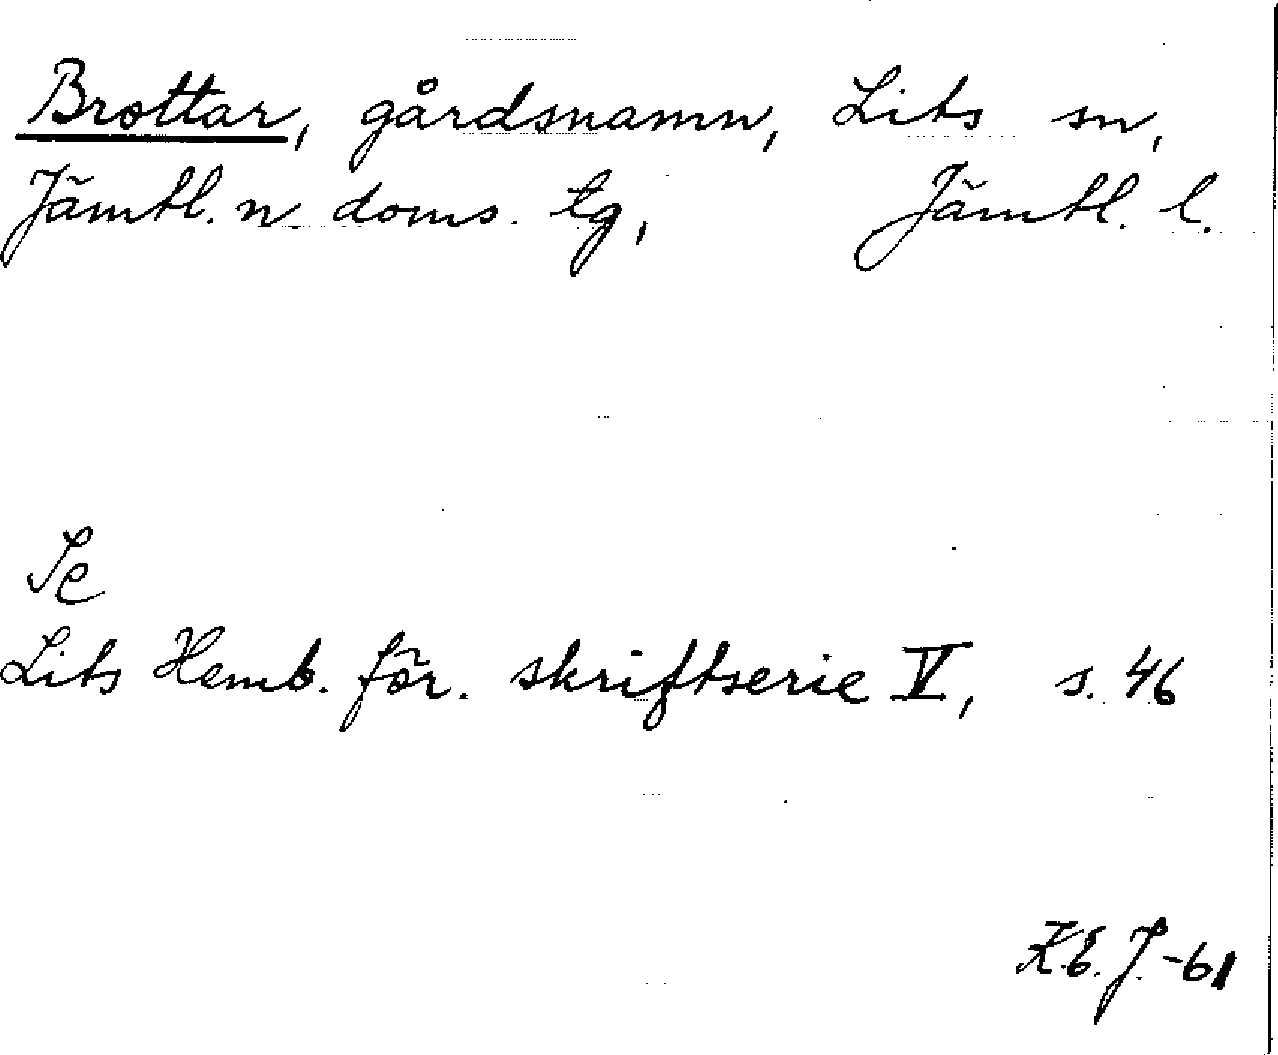 Brottar, gårdsnamn, Lits sn,
Jämtl. n. doms. tg, Jämtl. l.
Se
Lits Hemb. för. skriftserie V, s. 46
K.E. J. -61